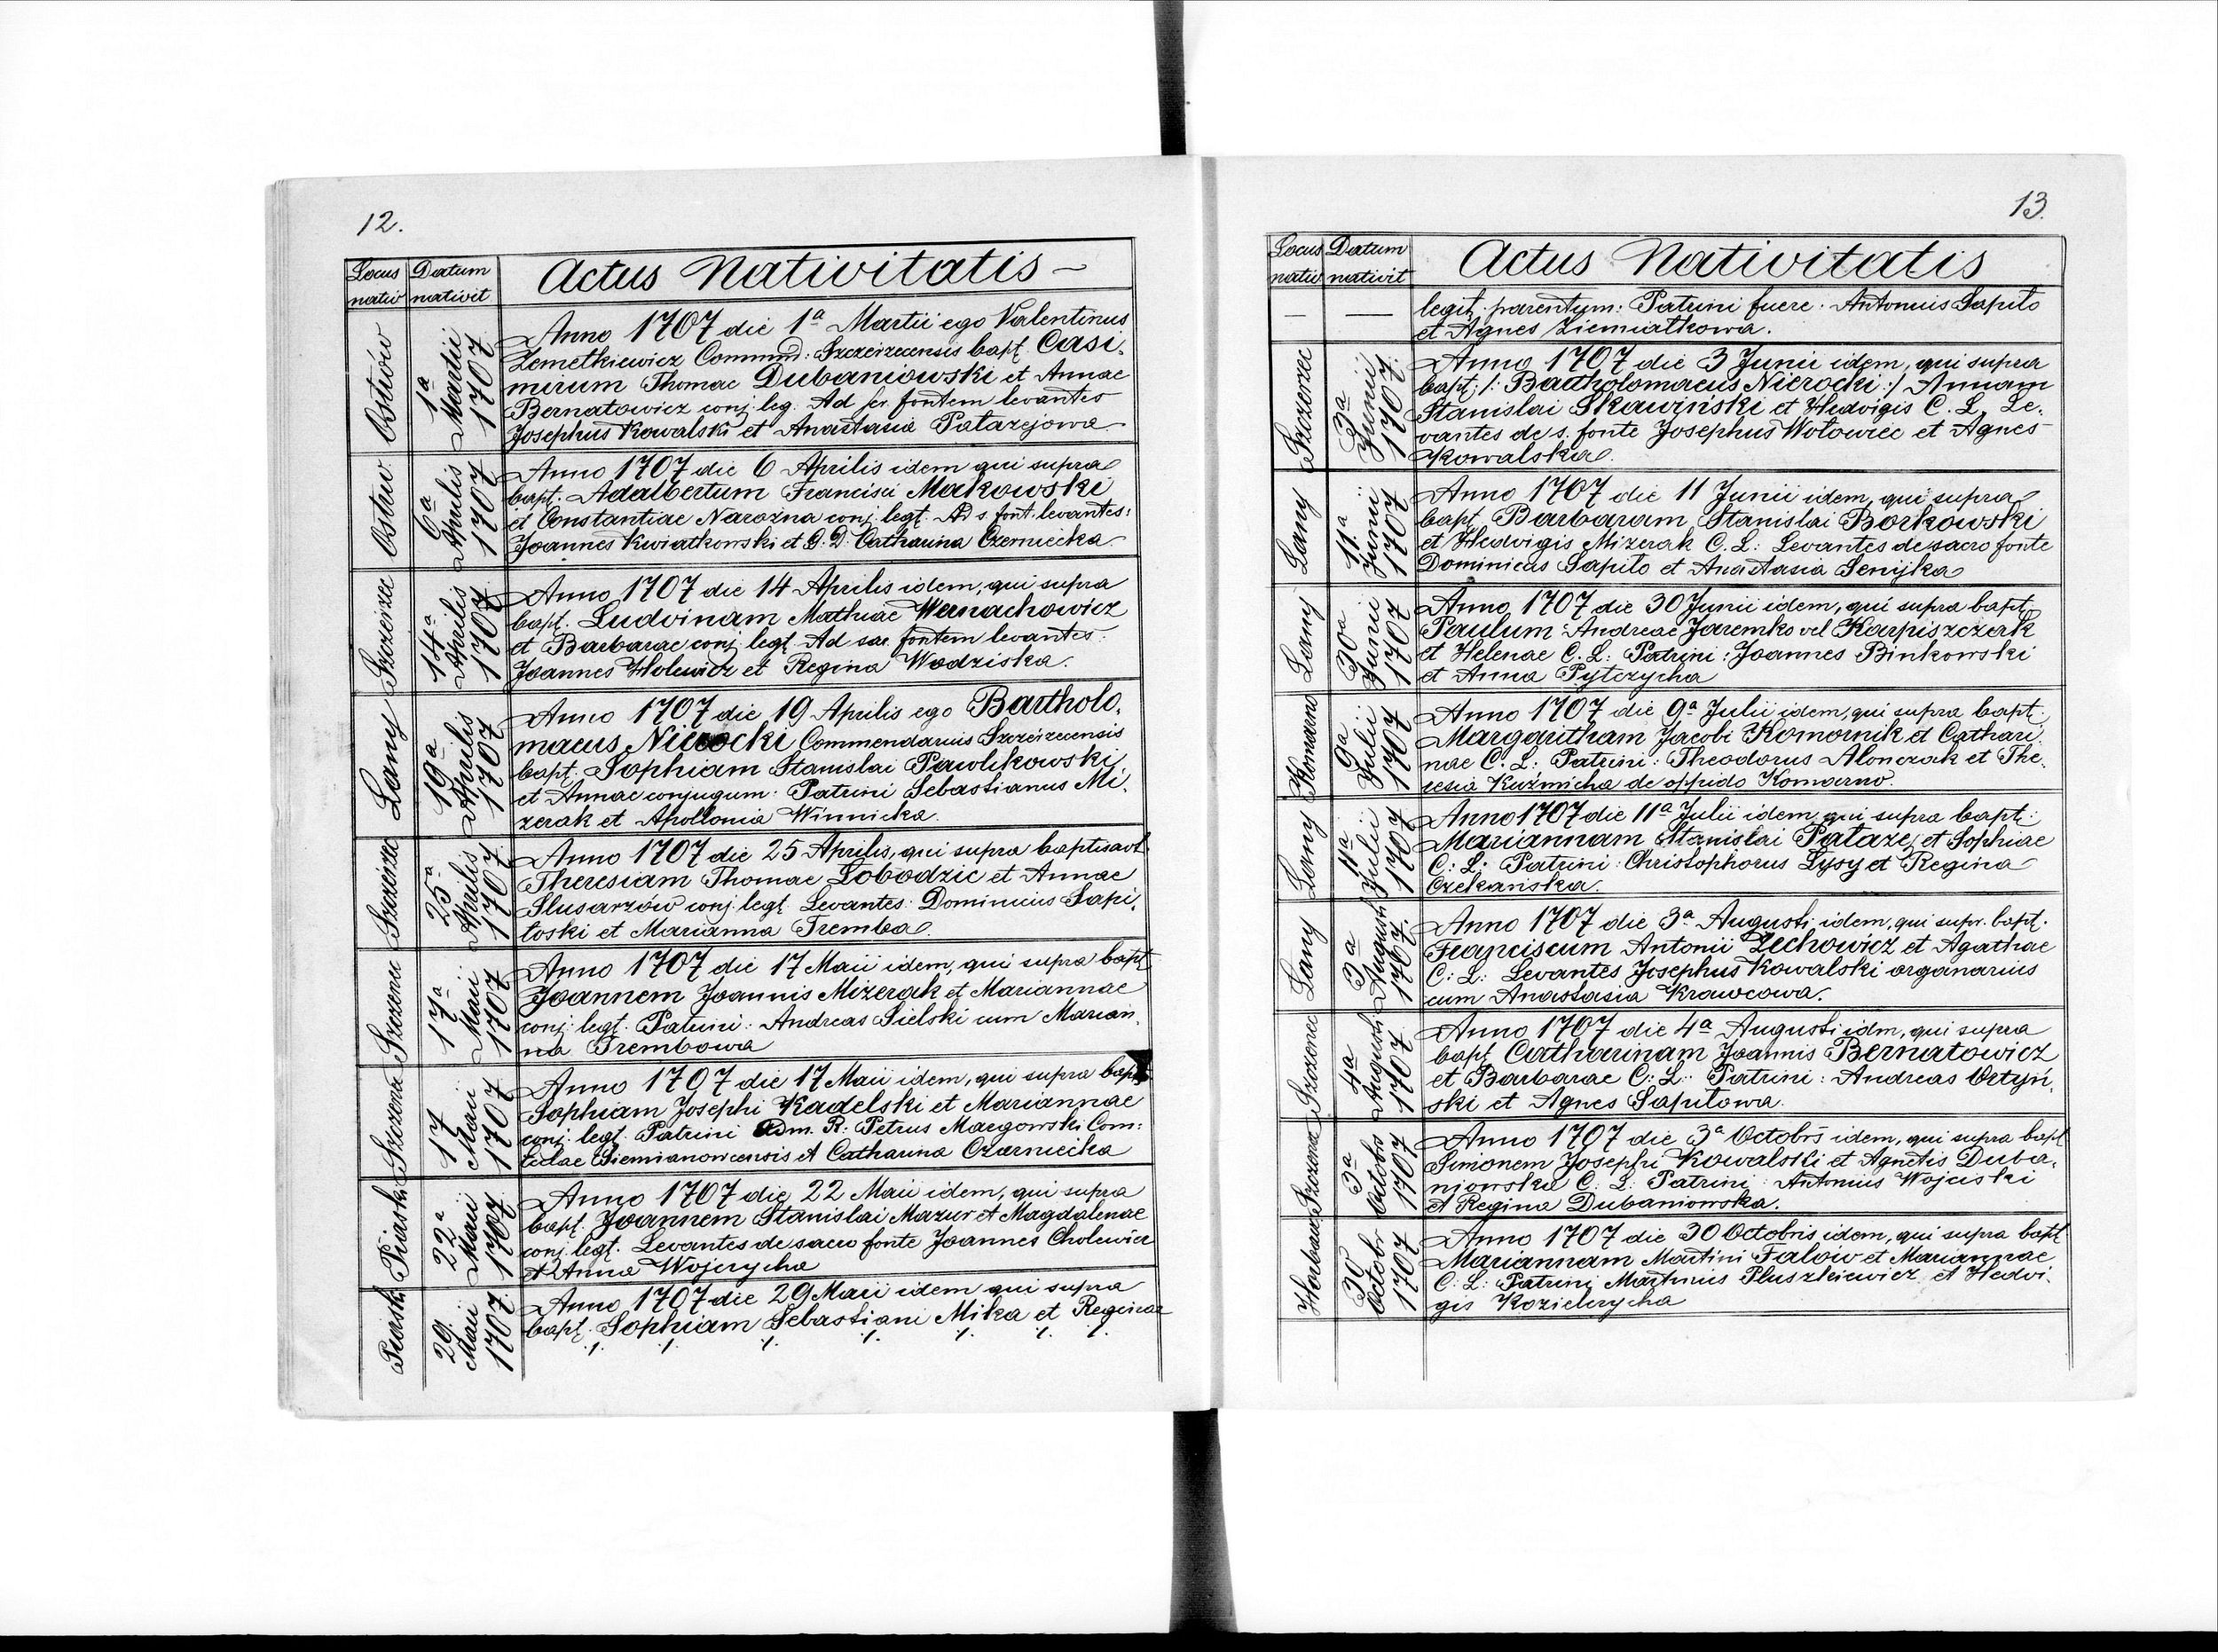 12.
Locus nativ
Datum nativit
Actus Nativitatis –
Ostrów
1a Martii 1707
Anno 1707 die 1a Martii ego Valentinus
Zemetkiewicz Commend: Szczeirzecensis bapt. Casi-
mirum Thomae Dubaniowski et Annae
Bernatowicz conj. leg. Ad scr. fontem levantes
Josephus Kowalski et Anastasia Patazejowa
Ostrw
6a Aprilis 1707
Anno 1707 die 6 Aprilis idem qui supra
bapt. Adalbertum Francisci Makowski
et Constantiae Narożna conj. legt. Ad s. font. levantes:
Joannes Kwiatkowski et G. D. Catharina Czerniecka
Szczeirzec
14a Aprilis 1707
Anno 1707 die 14 Aprilis idem, qui supra
bapt. Ludvinam Mathiae Wernachowicz
et Barbarae conj. legt. Ad sac. fontem levantes:
Joannes Holewicz et Regina Wodziska.
Lany
19a Aprilis 1707
Anno 1707 die 19 Aprilis ego Bartholo-
maeus Nierocki Commendarius Szczeirzecensis
bapt. Sophiam Stanislai Pawlikowski
et Annae conjugum: Patrini Sebastianus Mi-
zerak et Apollonia Winnicka.
Szczeirzec
25a Aprilis 1707
Anno 1707 die 25 Aprilis, qui supra baptisavt
Theresiam Thomae Lobodzic et Annae
Slusarzów conj. legt. Levantes: Dominicus Sapi-
toski et Marianna Tremba.
17a Maii 1707
Anno 1707 die 17 Maii idem, qui supra bapt
Joannem Joannis Mizerak et Mariannae
conj. legt. Patrini: Andreas Sielski cum Marian-
na Trembowa
17 Maii 1707
Anno 1707 die 17 Maii idem, qui supra bapt
Sophiam Josephi Kadelski et Mariannae
conj. legt. Patrini Adm. R: Petrus Margowski Com:
Siemianowcensis et Catharina Czarniecka
Piaski
22a Maii 1707
Anno 1707 die 22 Maii idem, qui supra
bapt. Joannem Stanislai Mazur et Magdalenae
conj. legt. Levantes de sacro fonte Joannes Cholewicz
et Anna Wojcrycha
Piaski
29. Maii 1707
Anno 1707 die 29 Maii idem qui supra
bapt. Sophiam Sebastiani Mika et Reginae
./. ./. ./. ./. ./. ./.
13.
Locus nativ
Datum nativit
Actus Nativitatis
— —
legit. parentum: Patrini fuere: Antonius Sapito
et Agnes Ziemiatkowa.
Szczerzec
3a Junii 1707
Anno 1707 die 3 Junii idem, qui supra
bapt. /: Bartholomaeus Nierocki :/ Annam
Stanislai Skawiński et Hedvigis C. L. Le-
vantes de s. fonte Josephus Wotowiec et Agnes
Kowalska.
Lany
11.a Junii 1707
Anno 1707 die 11 Junii idem, qui supra
bapt. Barbaram Stanislai Borkowski
et Hedvigis Mizerak C. L: Levantes de sacro fonte
Dominicus Sapito et Anastasia Senijka
Lany
30a Junii 1707
Anno 1707 die 30 Junii idem, qui supra bapt.
Paulum Andreae Jaremko vel Karpiszczak
et Helenae C. L: Patrini: Joannes Binkowski
et Anna Pytczycha
Komarno
9a Julii 1707
Anno 1707 die 9a Julii idem, qui supra bapt.
Margaritham Jacobi Komornik et Cathari-
nae C. L: Patrini: Theodorus Alonczak et The-
resia Kuźmicha de oppido Komarno.
Lany
11a Julii 1707
Anno 1707 die 11a Julii idem qui supra bapt:
Mariannam Stanislai Pataze, et Sophiae
C: L: Patrini: Christophorus Lysy et Regina
Czekańska.
Lany
3a Augusti 1707.
Anno 1707 die 3a Augusti idem, qui supr. bapt.
Franciscum Antonii Zechowicz et Agathae
C: L: Levantes Josephus Kowalski organarius
cum Anastasia Krawcowa.
Szczerzec
4a Augusti 1707
Anno 1707 die 4a Augusti idm, qui supra
bapt Catharinam Joannis Bernatowicz
et Barbarae C: L: Patrini: Andreas Ortyń-
ski et Agnes Sapitowa.
3a Octobr 1707
Anno 1707 die 3a Octobris idem, qui supra bapt
Simonem Josephi Kowalski et Agnetis Duba-
niowska C: L: Patrini: Antonius Wojciski
et Regina Dubaniowska.
30 Octobr 1707
Anno 1707 die 30 Octobris idem, qui supra bapt
Mariannam Martini Falow et Mariannae
C: L: Patrini Martinus Pluszkiewicz et Hedvi-
gis Kozielrycha